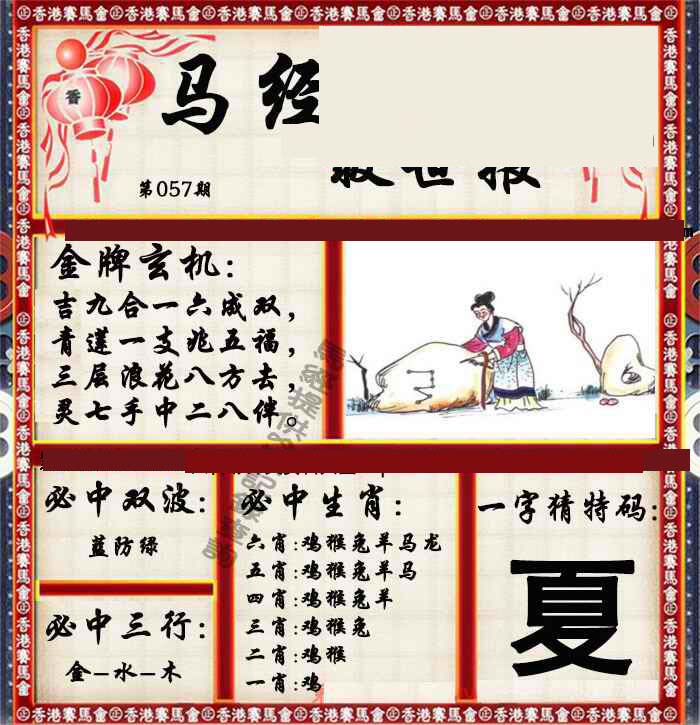 香港賽馬會
香
马经
救世报
第057期
金牌玄机:
吉九合一六成双,
青莲一支兆五福,
三层浪花八方去,
灵七手中二八伴。
必中双波:
蓝防绿
必中三行:
金–水–木
必中生肖:
六肖:鸡猴兔羊马龙
五肖:鸡猴兔羊马
四肖:鸡猴兔羊
三肖:鸡猴兔
二肖:鸡猴
一肖:鸡
一字猜特码:
夏